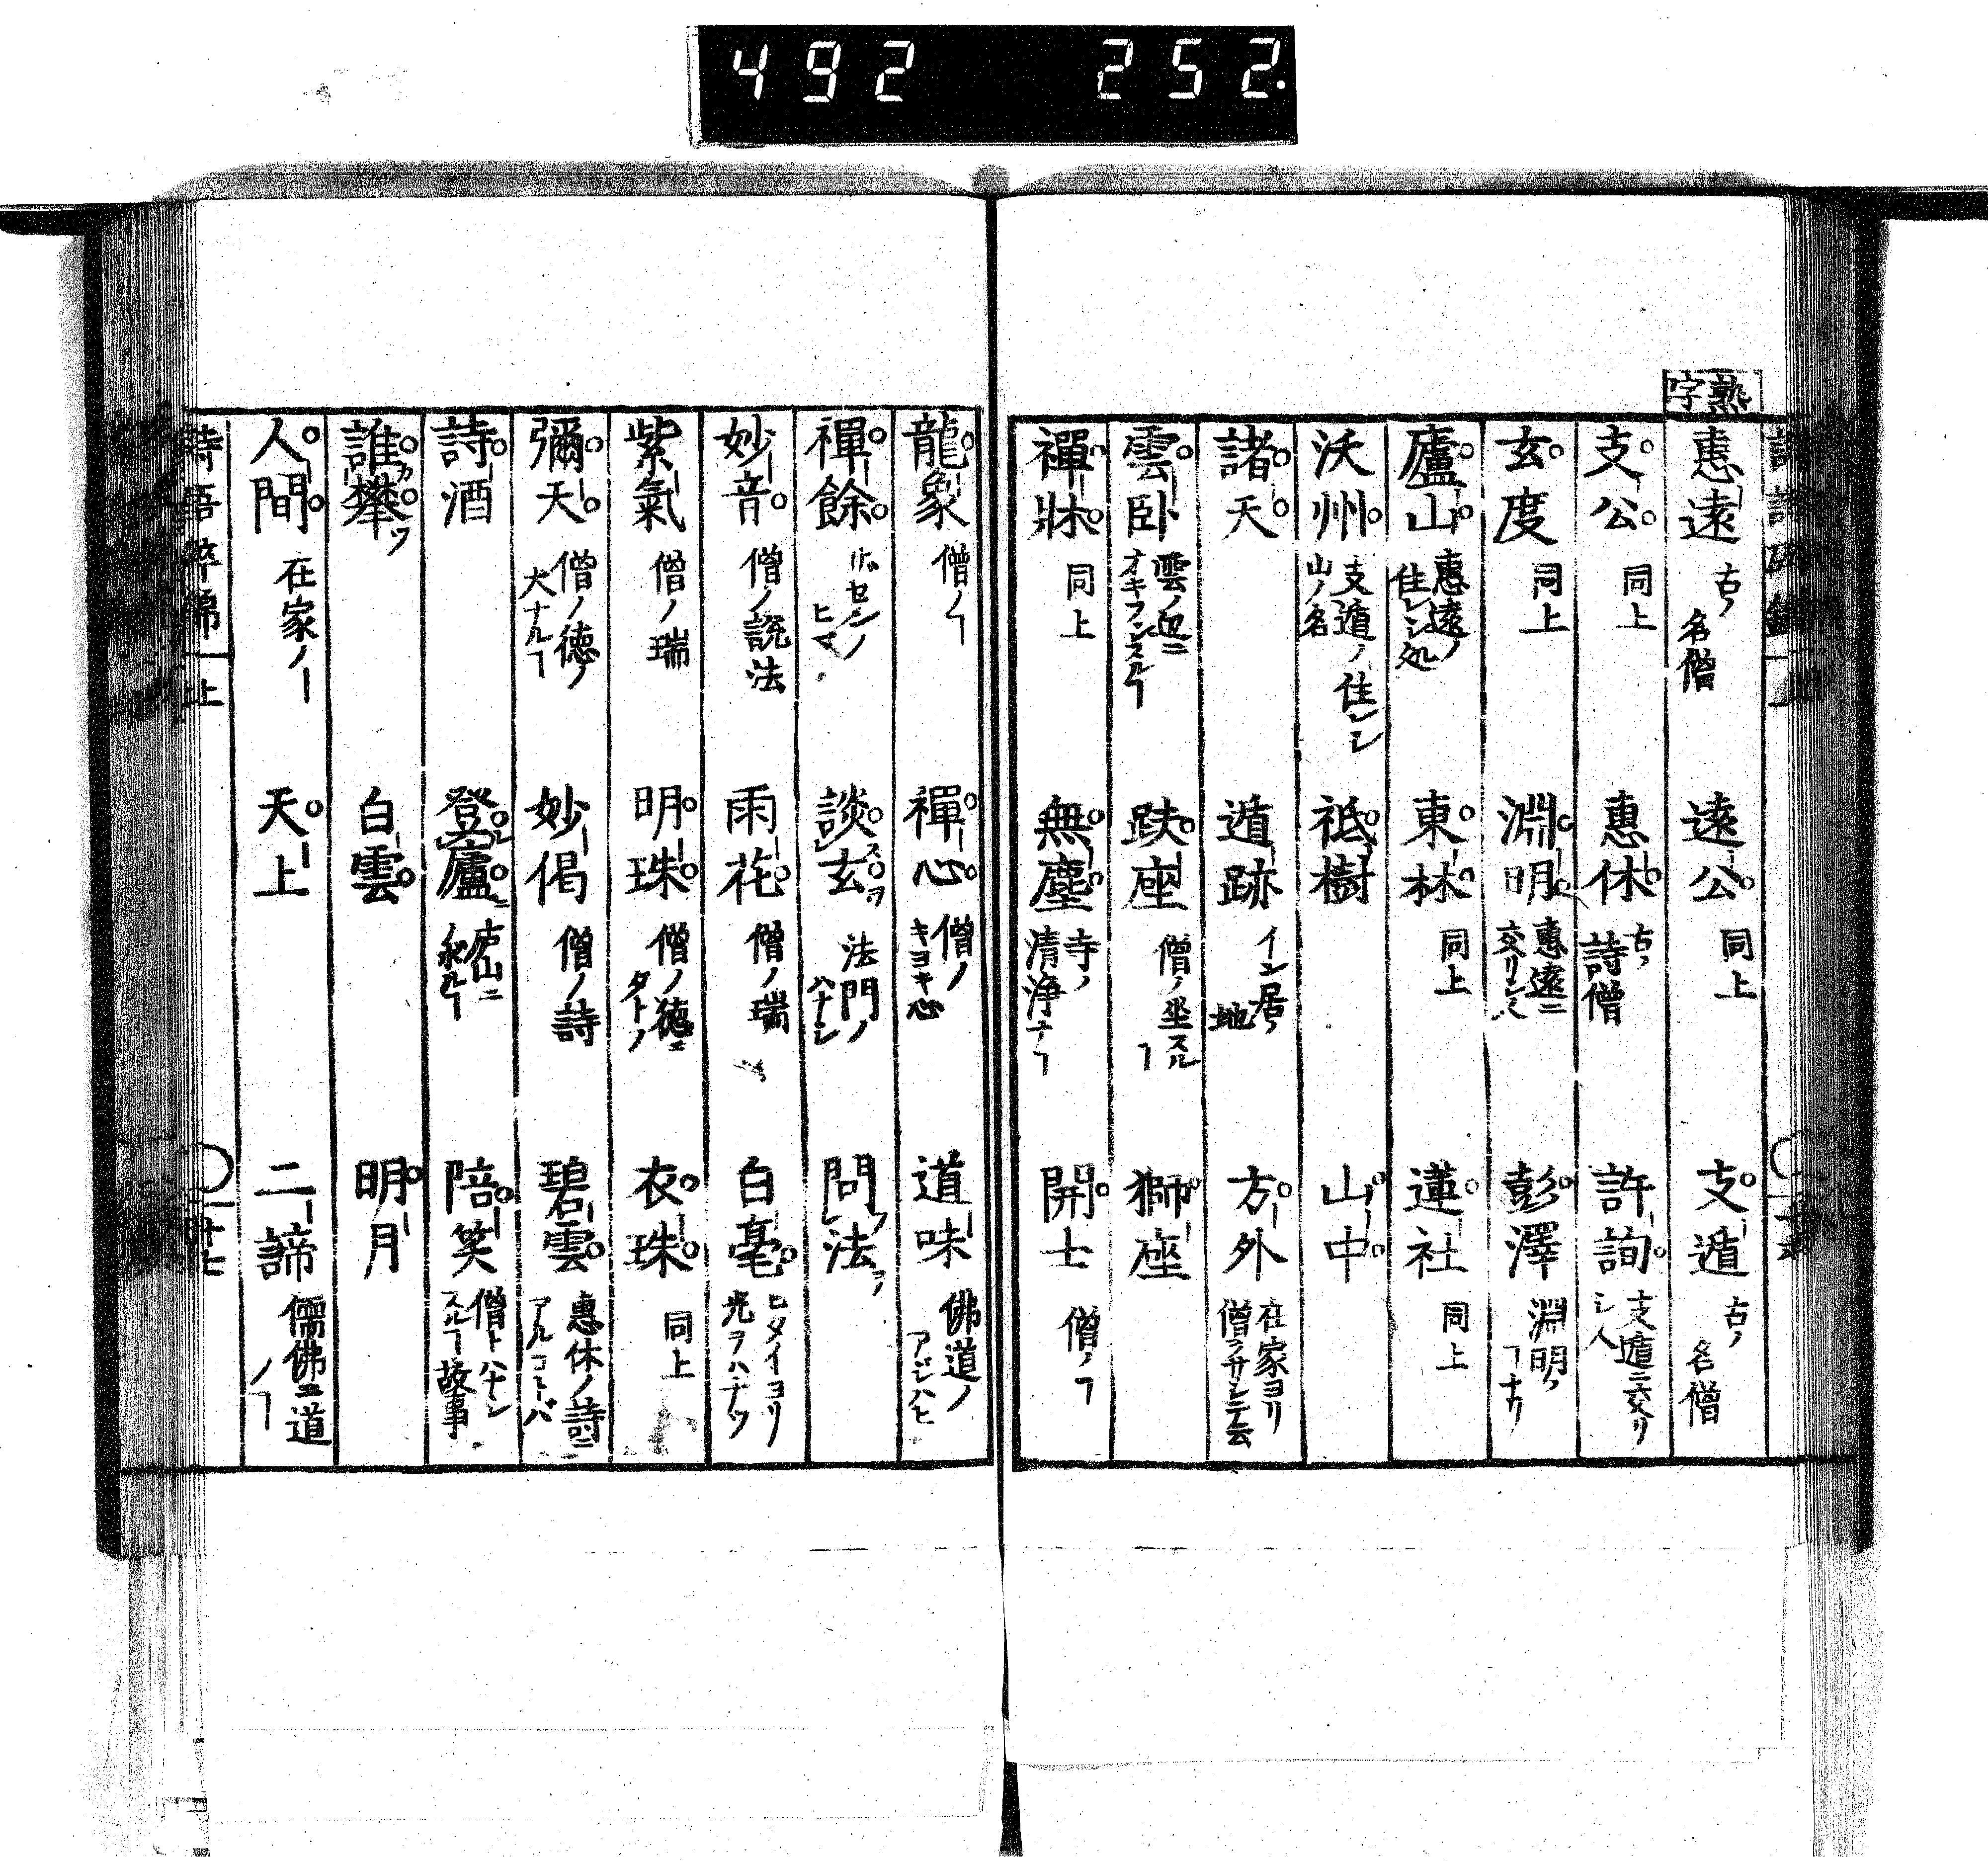 492 252.
熟字
惠遠 古ノ名僧 遠公 同上 支遁 古ノ名僧
支公 同上 惠休 古ノ詩僧 許詢 支遁ニ交リシ人
玄度 同上 淵明 惠遠ニ交リシ人 彭澤 淵明ノヿナリ
廬山 惠遠ノ住シシ処 東林 同上 蓮社 同上
沃州 支遁ノ住シシ山ノ名 祗樹 山中
諸天 遁跡 イン居ノ地 方外 在家ヨリ僧ヲサシテ云
雲卧 雲ノ辺ニオキフシスルヿ 趺座 僧ノ坐スルヿ 獅座
禪牀 同上 無塵 寺ノ清浄ナヿ 開士 僧ノヿ
龍象 僧ノヿ 禪心 僧ノキヨキ心 道味 佛道ノアジハヒ
禪餘 ザセンノヒマ 談玄 法門ノハナシ 問法
妙音 僧ノ説法 雨花 僧ノ瑞 白毫 ヒタイヨリ光ヲハナツ
紫氣 僧ノ瑞 明珠 僧ノ徳ニタトフ 衣珠 同上
彌天 僧ノ徳ノ大ナルヿ 妙偈 僧ノ詩 碧雲 惠休ノ詩ニアルコトバ
詩酒 登廬 庐山ニ 陪笑 僧トハナシスルヿ故事
誰攀 白雲 明月
人間 在家ノヿ 天上 二諦 儒佛二道ノヿ
詩語砕錦 上 〇 卅七